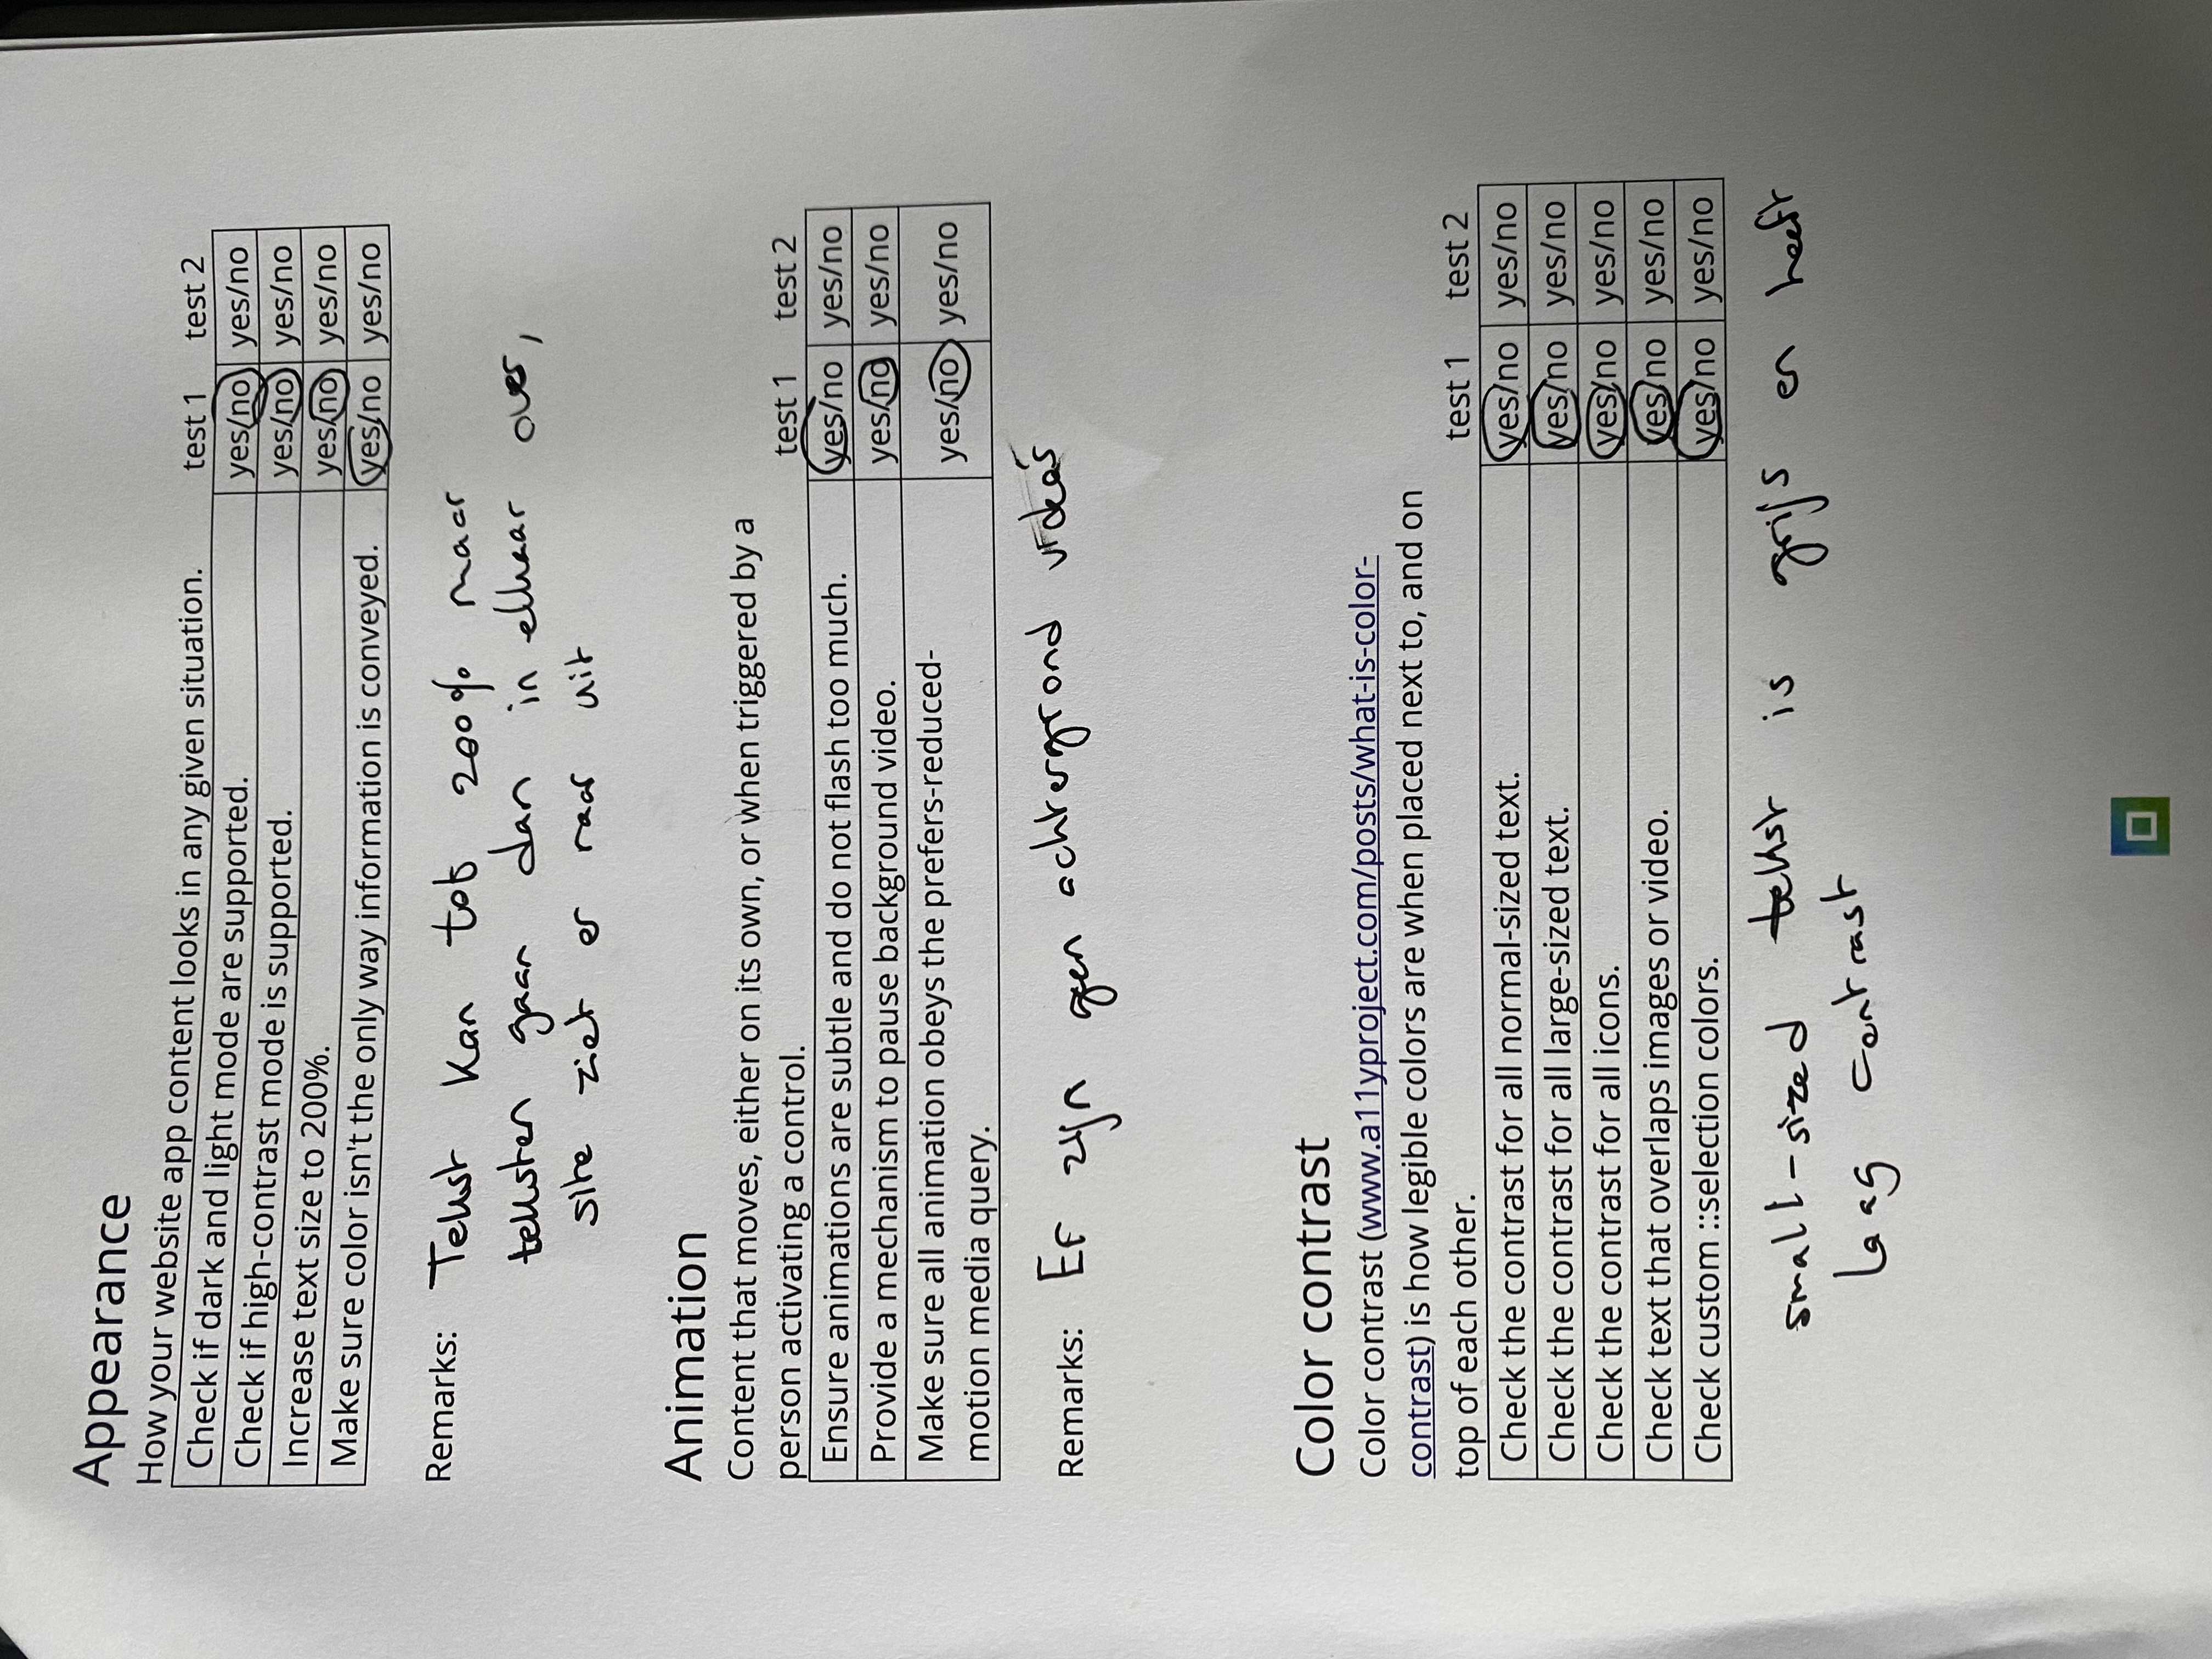 Appearance
How your website app content looks in any given situation. test 1 test 2
Check if dark and light mode are supported. yes/no yes/no
Check if high-contrast mode is supported. yes/no yes/no
Increase text size to 200%. yes/no yes/no
Make sure color isn't the only way information is conveyed. yes/no yes/no
Remarks: Tekst kan tot 200% maar
teksten gaan dan in elkaar over,
site ziet er raar uit
Animation
Content that moves, either on its own, or when triggered by a
person activating a control. test 1 test 2
Ensure animations are subtle and do not flash too much. yes/no yes/no
Provide a mechanism to pause background video. yes/no yes/no
Make sure all animation obeys the prefers-reduced-
motion media query. yes/no yes/no
Remarks: Er zijn geen achtergrond video's
Color contrast
Color contrast (www.a11yproject.com/posts/what-is-color-
contrast) is how legible colors are when placed next to, and on
top of each other. test 1 test 2
Check the contrast for all normal-sized text. yes/no yes/no
Check the contrast for all large-sized text. yes/no yes/no
Check the contrast for all icons. yes/no yes/no
Check text that overlaps images or video. yes/no yes/no
Check custom ::selection colors. yes/no yes/no
small-sized tekst is grijs en heeft
laag contrast